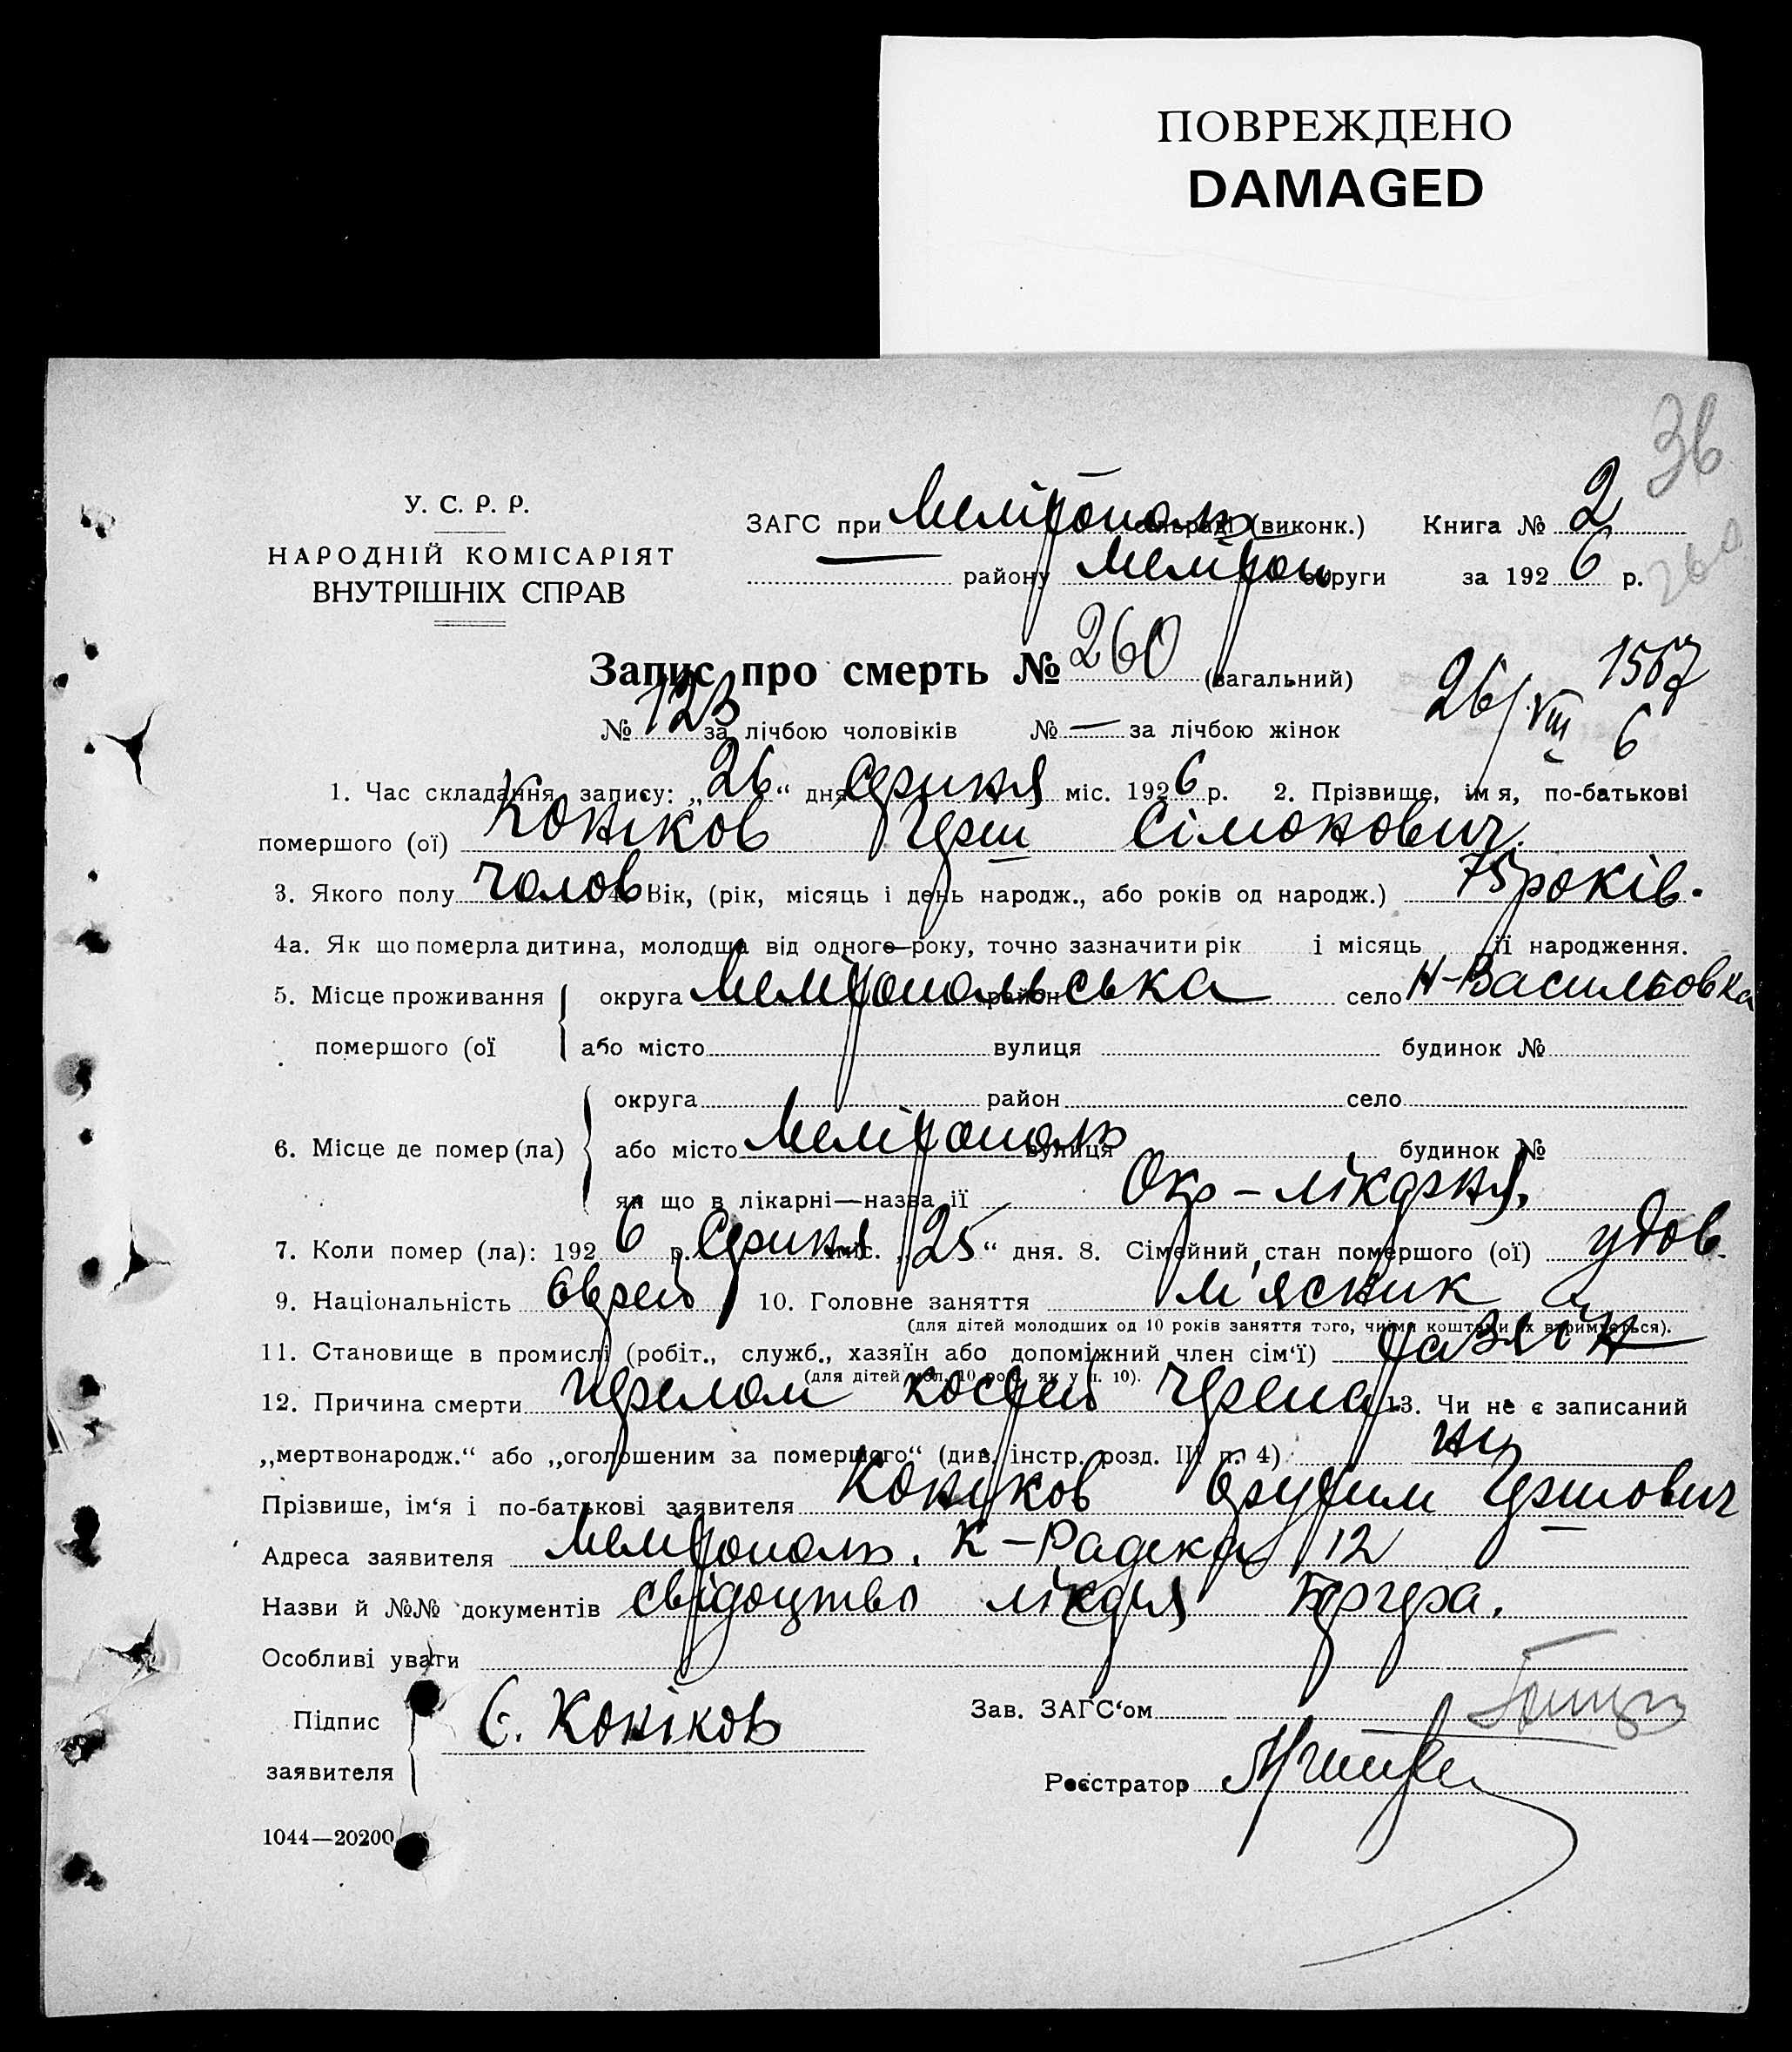 ПОВРЕЖДЕНО
DAMAGED
36
У. С. Р. Р.
НАРОДНІЙ КОМІСАРІЯТ
ВНУТРІШНІХ СПРАВ
ЗАГС при Мелітополь (виконк.) Книга № 2
— району Мелітоп округи за 1926 р.
260
Запис про смерть № 260 (загальний)
№ 123 за лічбою чоловіків № — за лічбою жінок
1567
26/VIII 6
1. Час складання запису: „26“ дня Серпня міс. 1926 р. 2. Прізвище, імя, по-батькові
помершого (ої) Коніков Герш Сімонович.
3. Якого полу чолов 4. Вік, (рік, місяць і день народж., або років од народж.) 75 років.
4а. Як що померла дитина, молодша від одного року, точно зазначити рік і місяць її народження.
5. Місце проживання помершого (ої округа Мелітопольська район село Н-Васильовка
або місто вулиця будинок №
6. Місце де помер (ла) округа район село
або місто Мелітополь вулиця будинок №
як що в лікарні—назва її Окр-лікарня.
7. Коли помер (ла): 1926 р. Серпня міс. „25“ дня. 8. Сімейний стан помершого (ої) удов.
9. Національність Єврей 10. Головне заняття м'ясник
(для дітей молодших од 10 років заняття того, чиїми коштами їх втримується).
11. Становище в промислі (робіт., служб., хазяїн або допоміжний член сім‘ї) хазяїн
(для дітей мол. 10 років як у п. 10).
12. Причина смерти перелом костей черепа. 13. Чи не є записаний
„мертвонародж.“ або „оголошеним за помершого“ (див. інстр. розд. III п. 4) ні
Прізвише, ім‘я і по-батькові заявителя Коніков Гершович
Адреса заявителя Мелітополь. К-Радека 12
Назви й №№ документів свідоцтво лікаря Бергера.
Особливі уваги
Підпис заявителя Є. Коніков
Зав. ЗАГС‘ом
Реєстратор
1044—20200